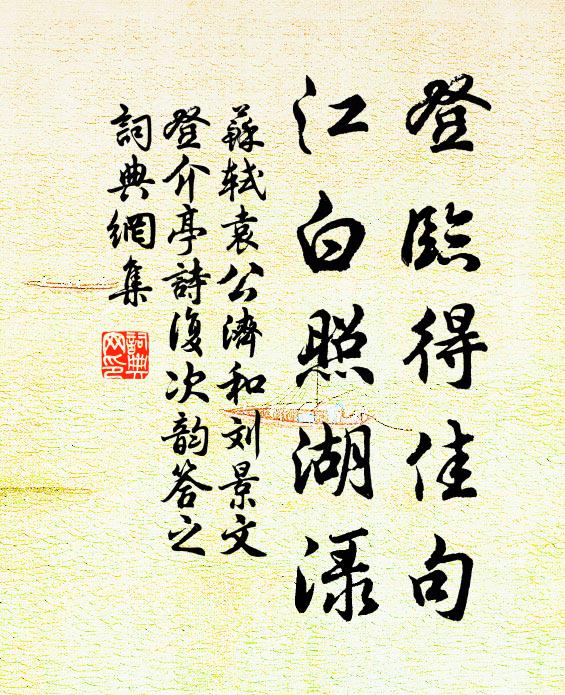 登臨得佳句
江白照湖渌
蘇軾袁公濟和刘景文
登介亭詩復次韵答之
詞典網集
詞典网印